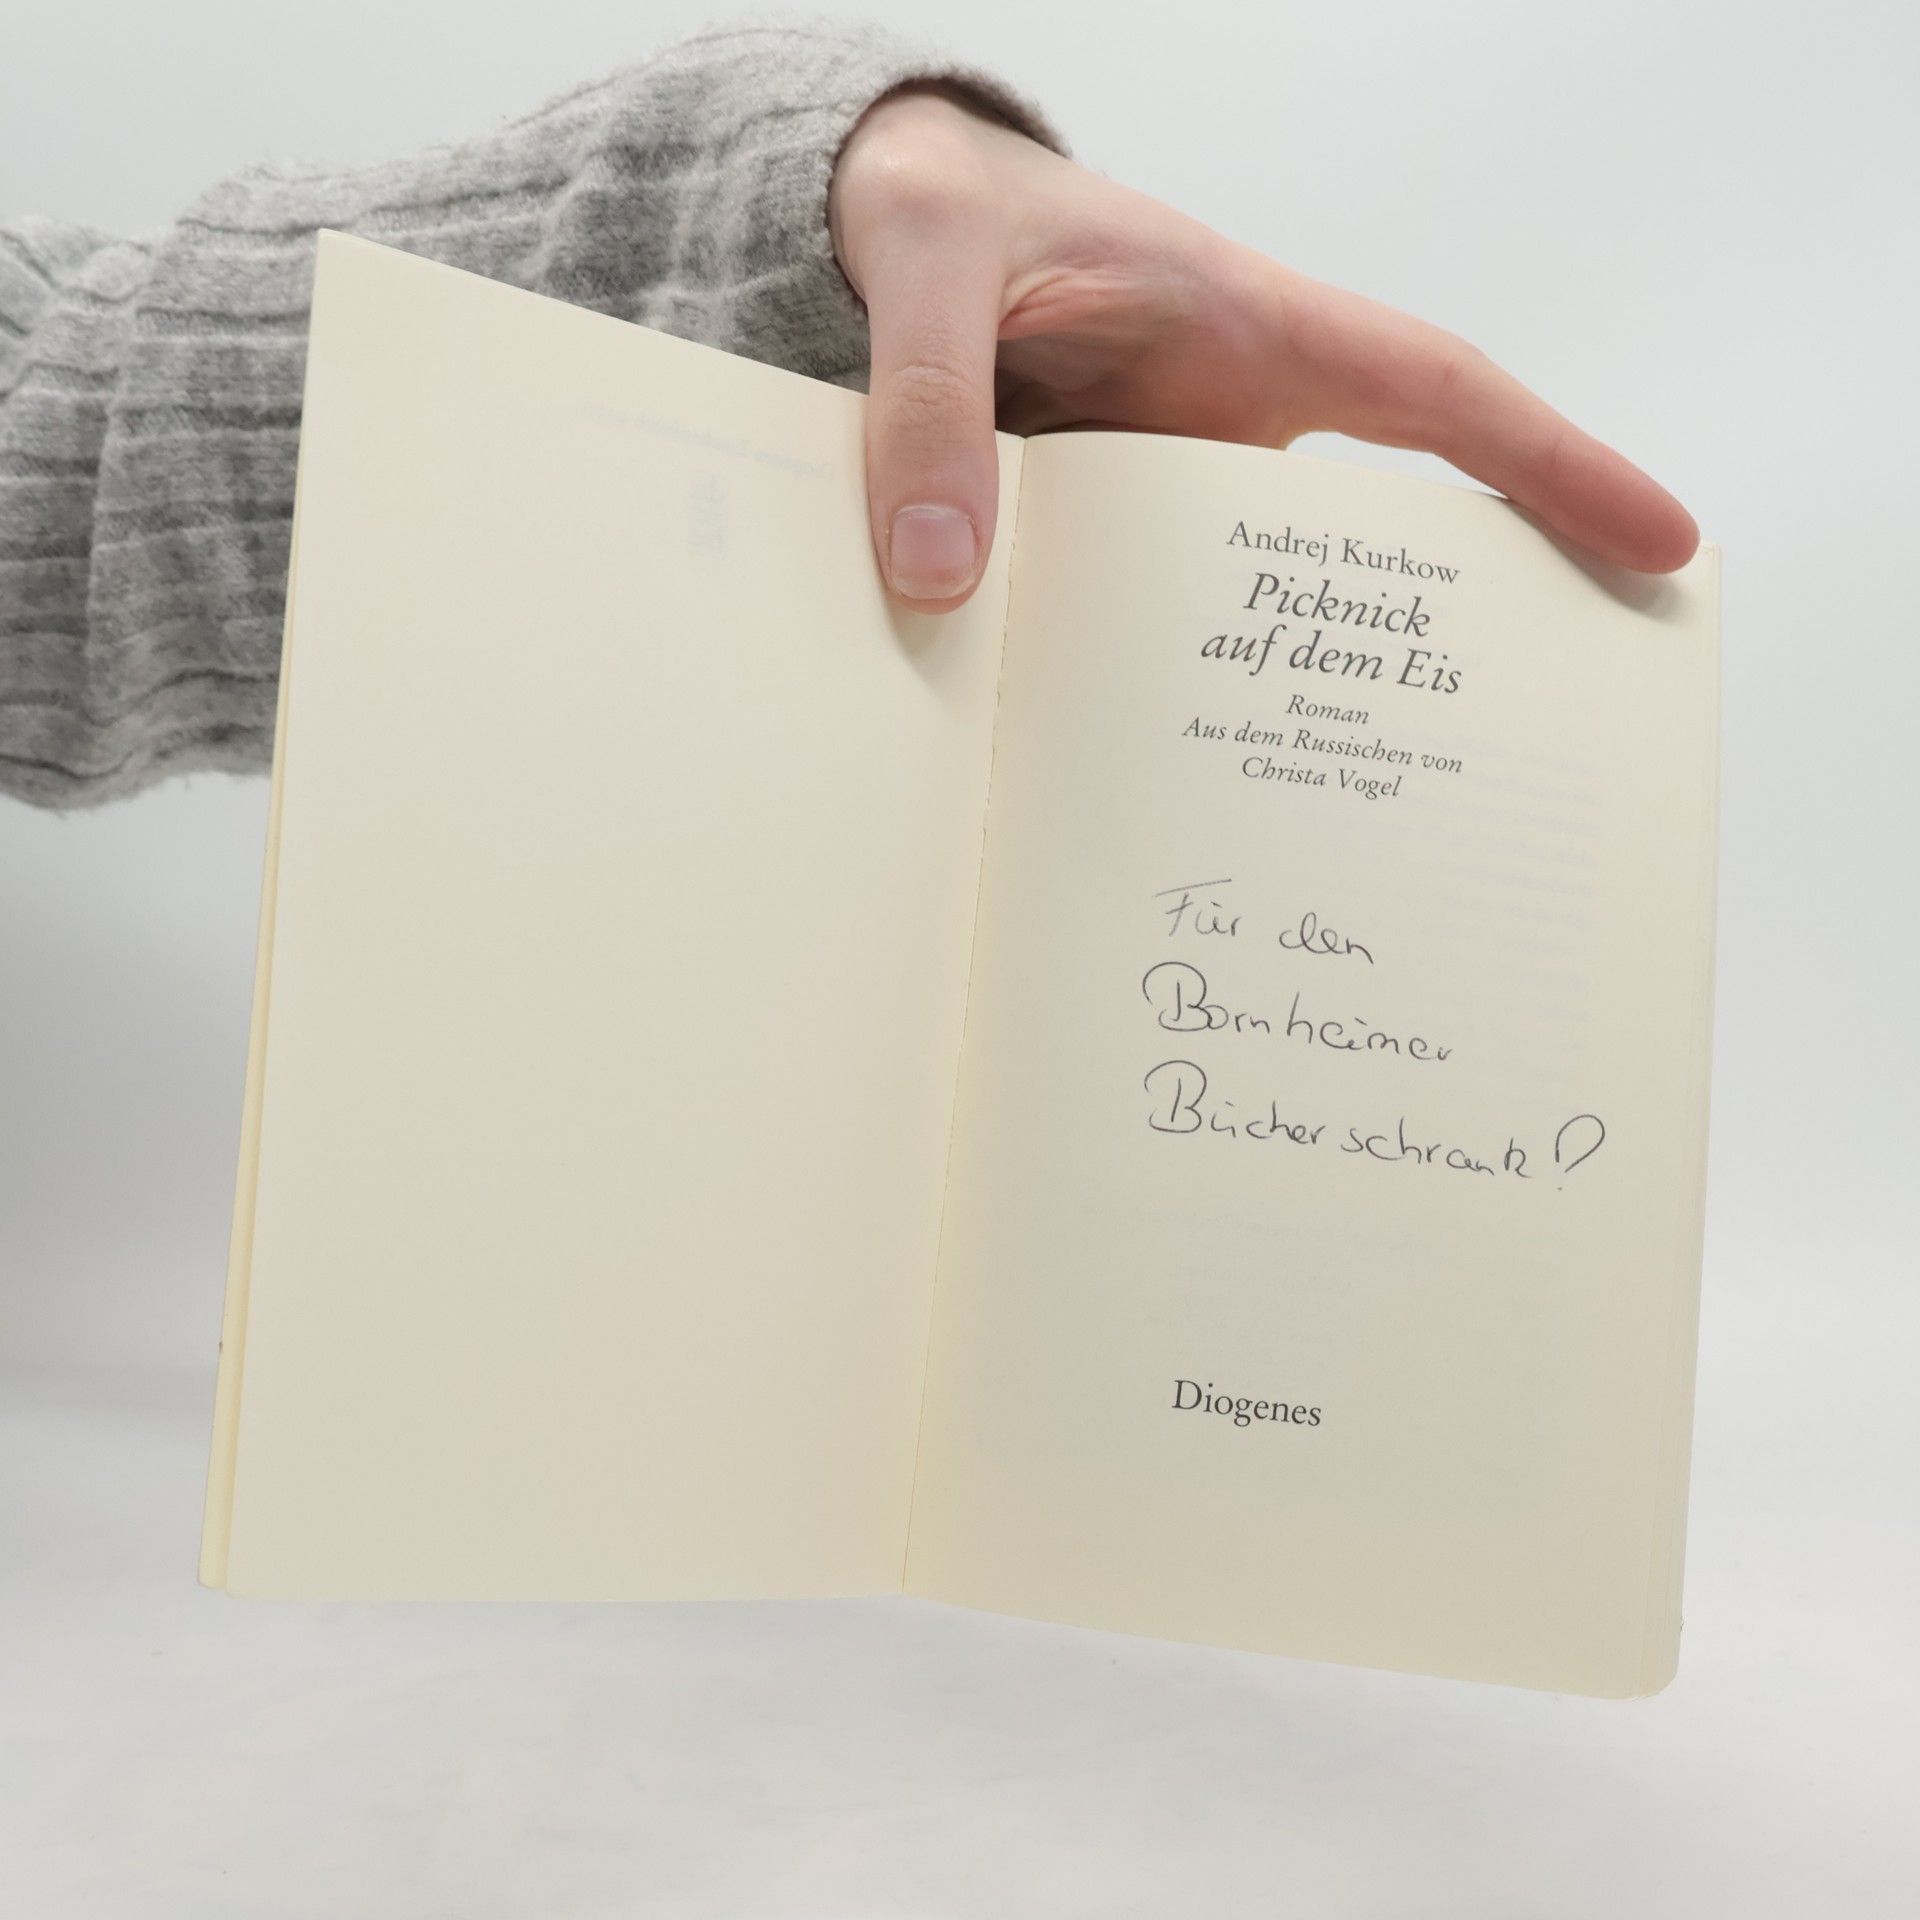 Andrej Kurkow
Picknick
auf dem Eis
Roman
Aus dem Russischen von
Christa Vogel
Für den
Bornheimer
Bücherschrank!
Diogenes